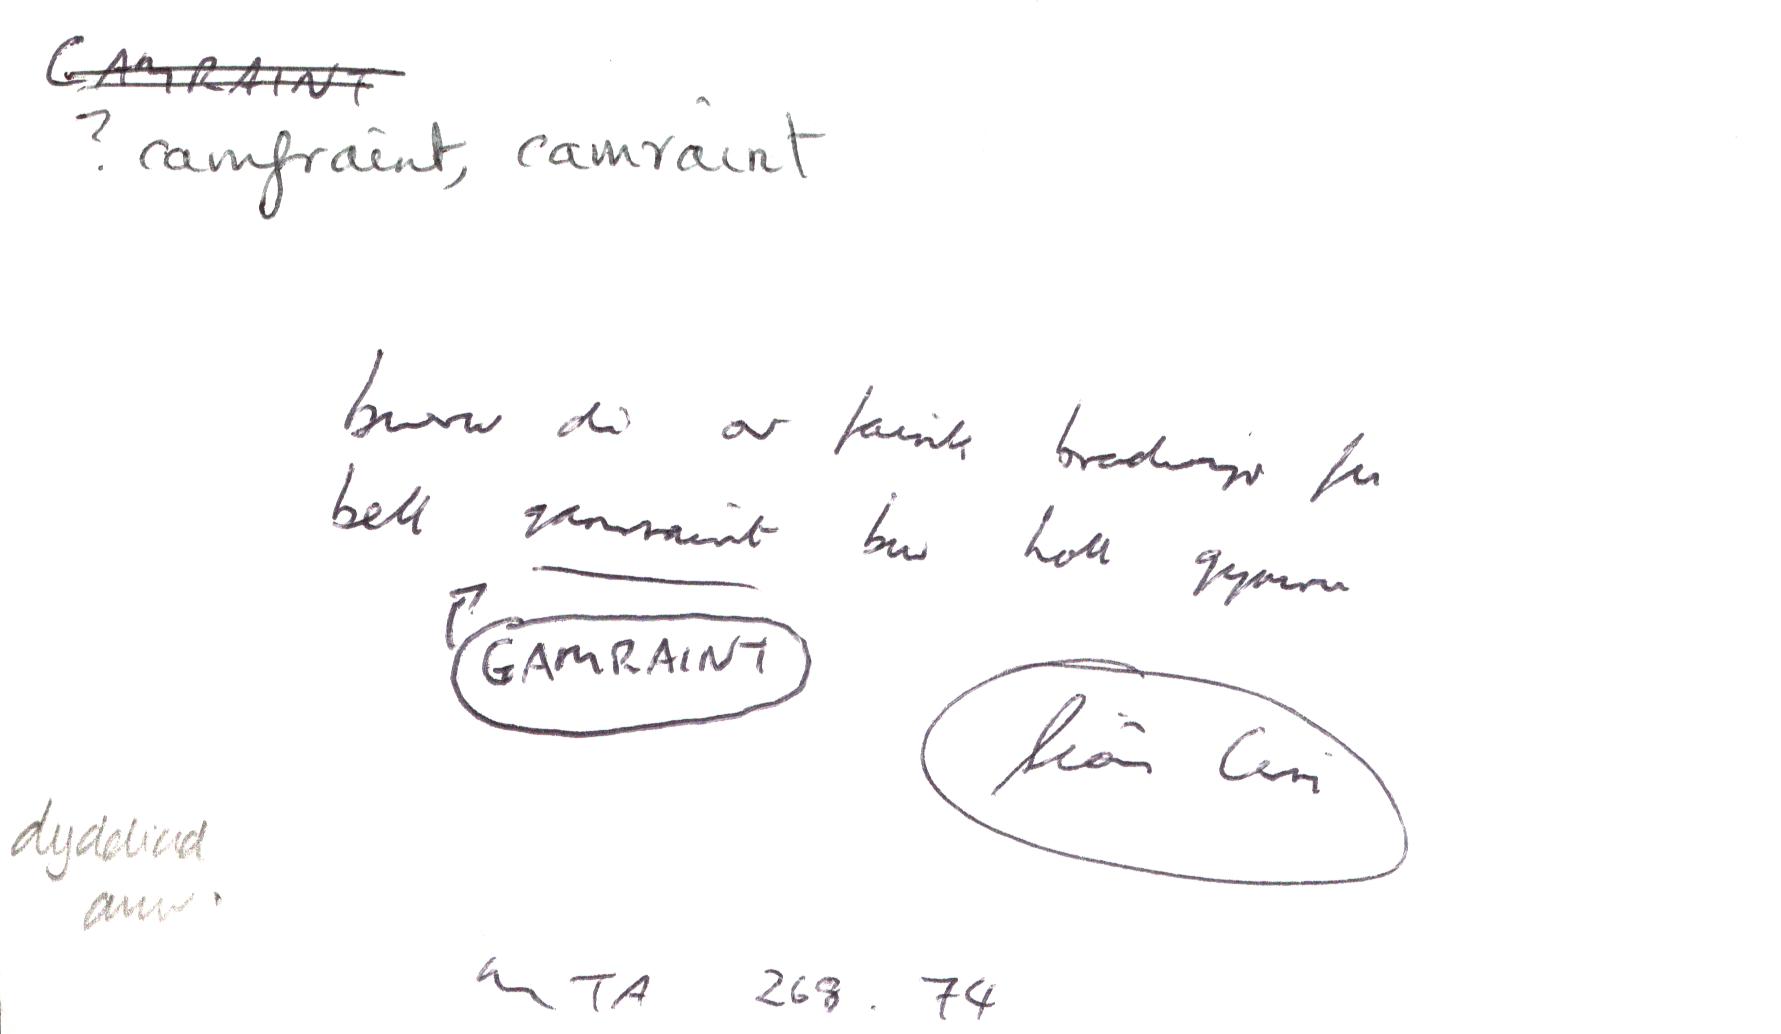 CAMRAINT
? camfraint, camraint
bwrw di or faink fu
bell gamraint bu holl gymru
GAMRAINT
Siôn Ceri
dyddiad
anw.
TA 268. 74